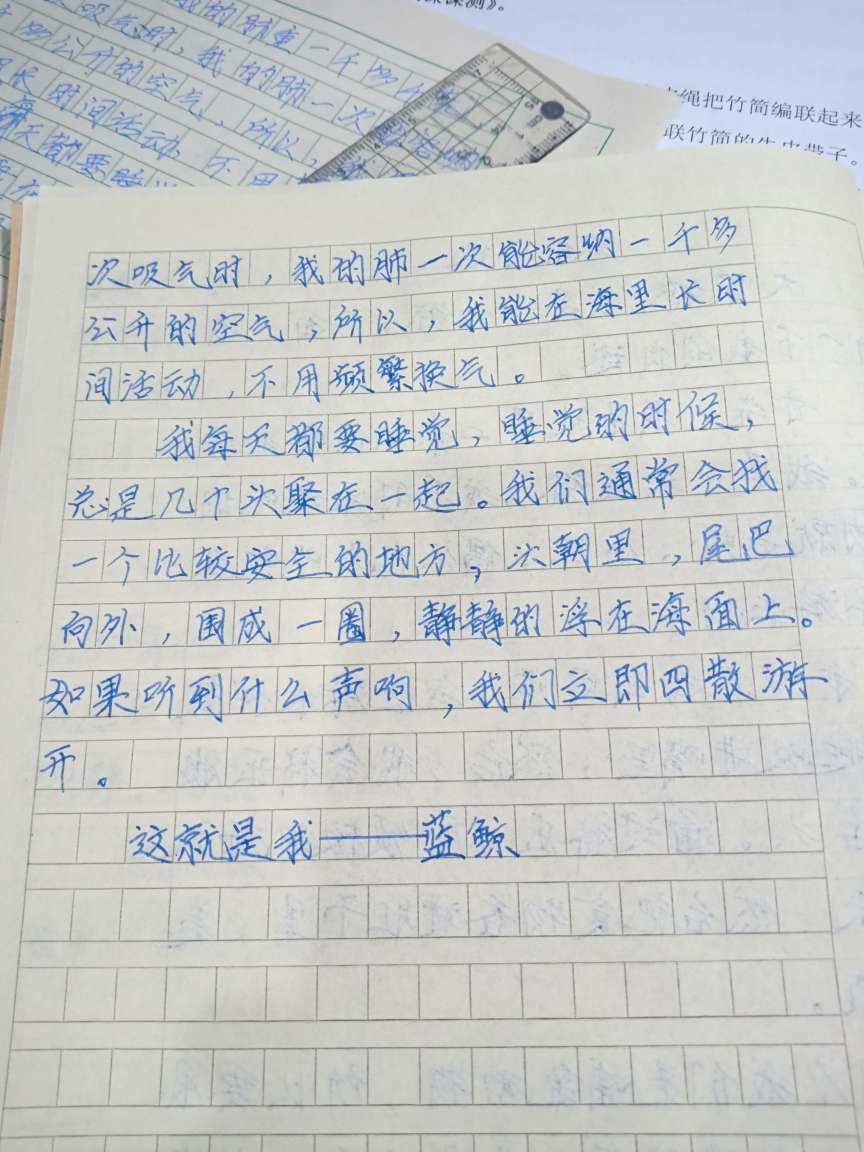 课课测》。
绳把竹简编联起来
联竹简的牛皮带子。
吸气时，我的肺重一千多
多公斤的空气，所以，
长时间活动，不用
每天都要睡
次吸气时，我的肺一次能容纳一千多
公升的空气，所以，我能在海里长时
间活动，不用频繁换气。
我每天都要睡觉，睡觉的时候，
总是几个头聚在一起。我们通常会找
一个比较安全的地方，头朝里，尾巴
向外，围成一圈，静静的浮在海面上。
如果听到什么声响，我们立即四散游
开。
这就是我——蓝鲸